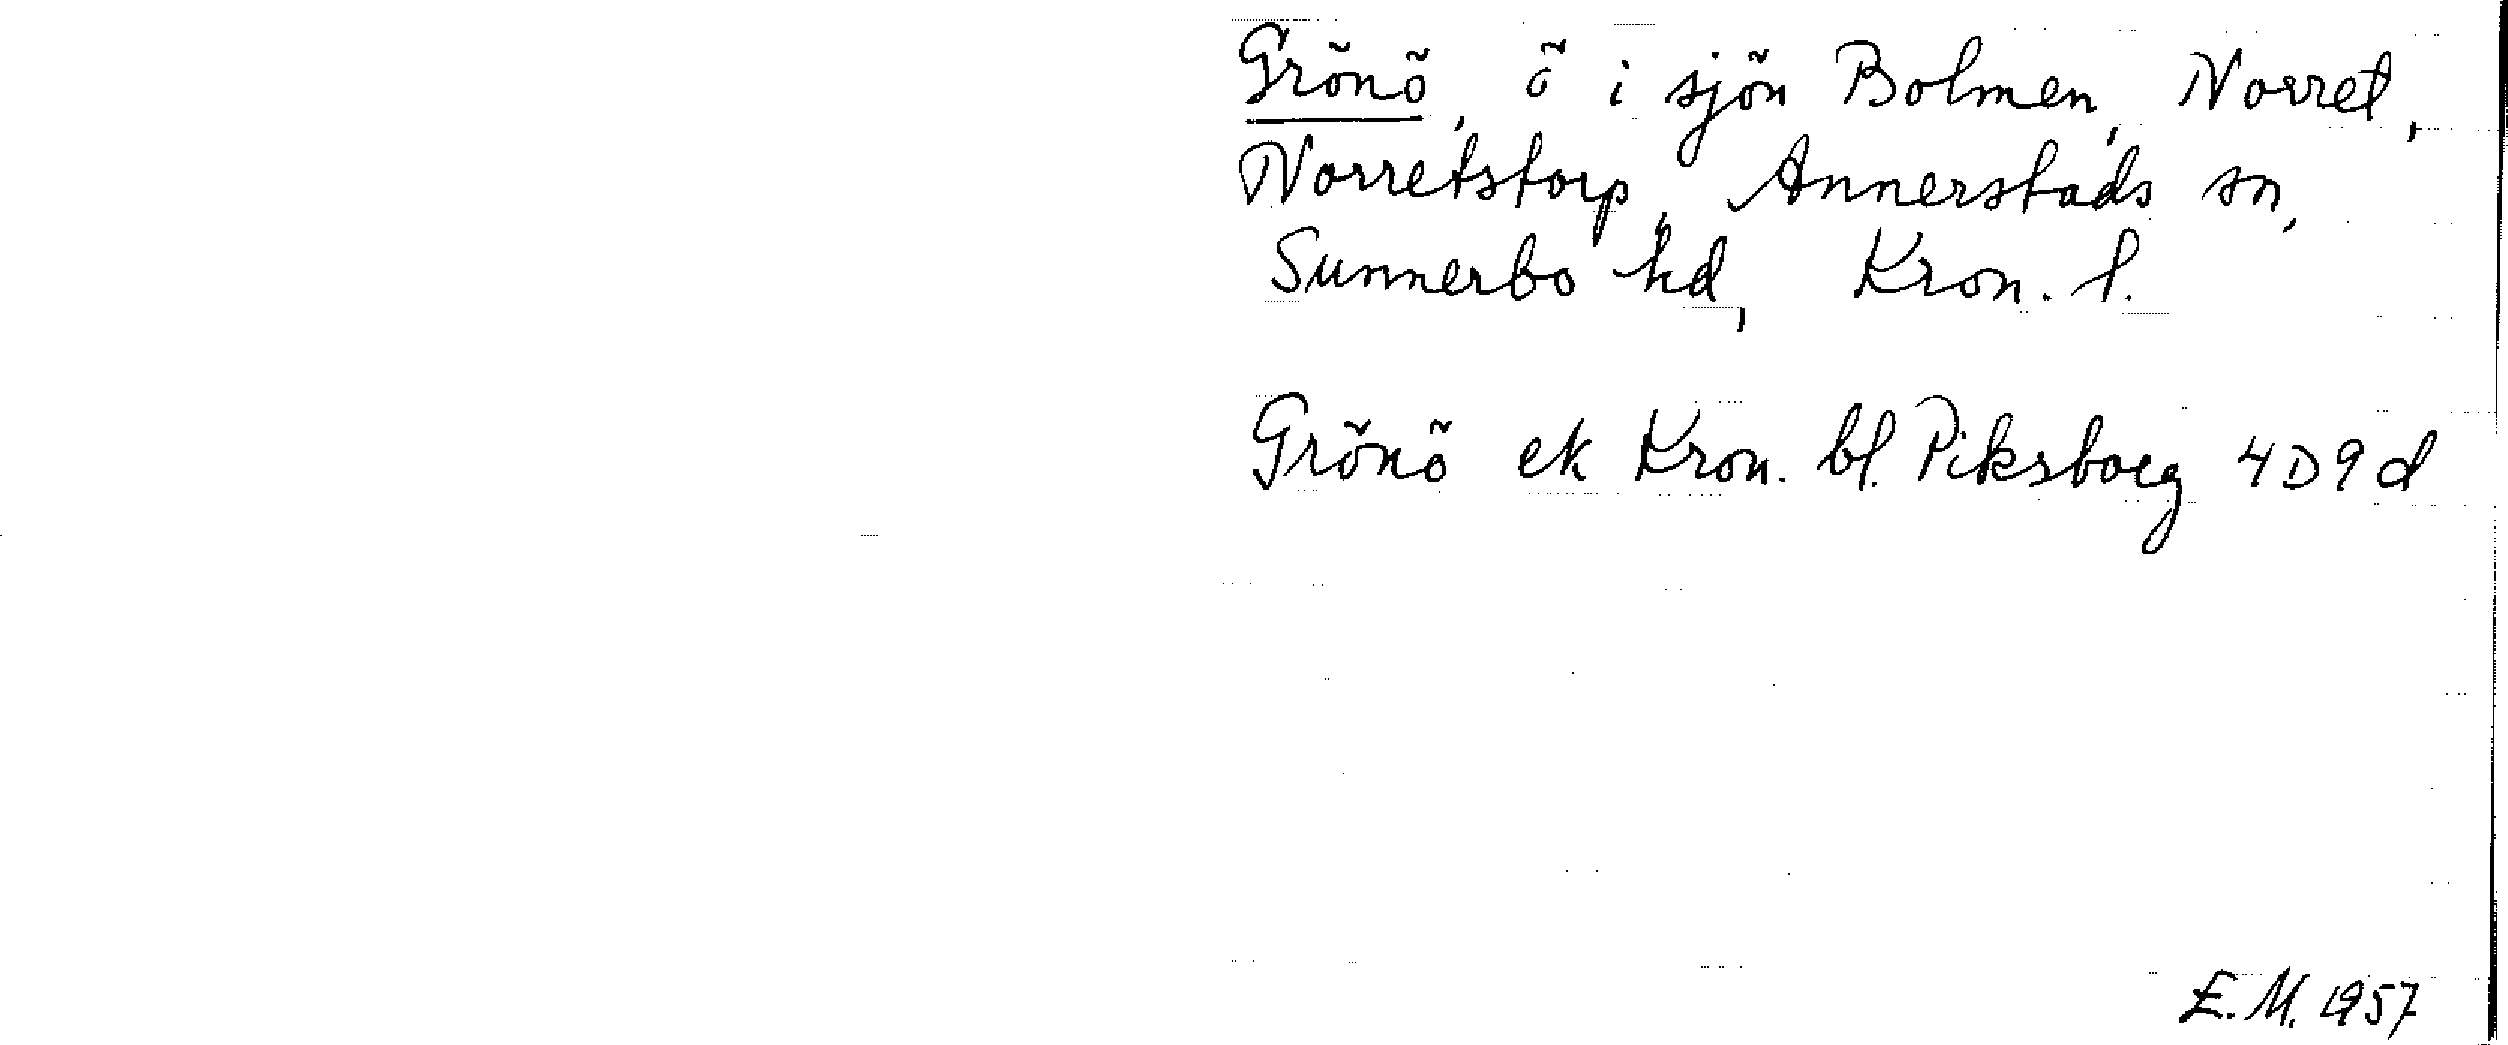 Grönö, ö i sjön Bolmen, Norret,
Norretstorp, Annerstads sn,
Sunnerbo hd, Kron. l.
Grönö ek Kron. bl. Piksborg 4D9d
E.M. 1957